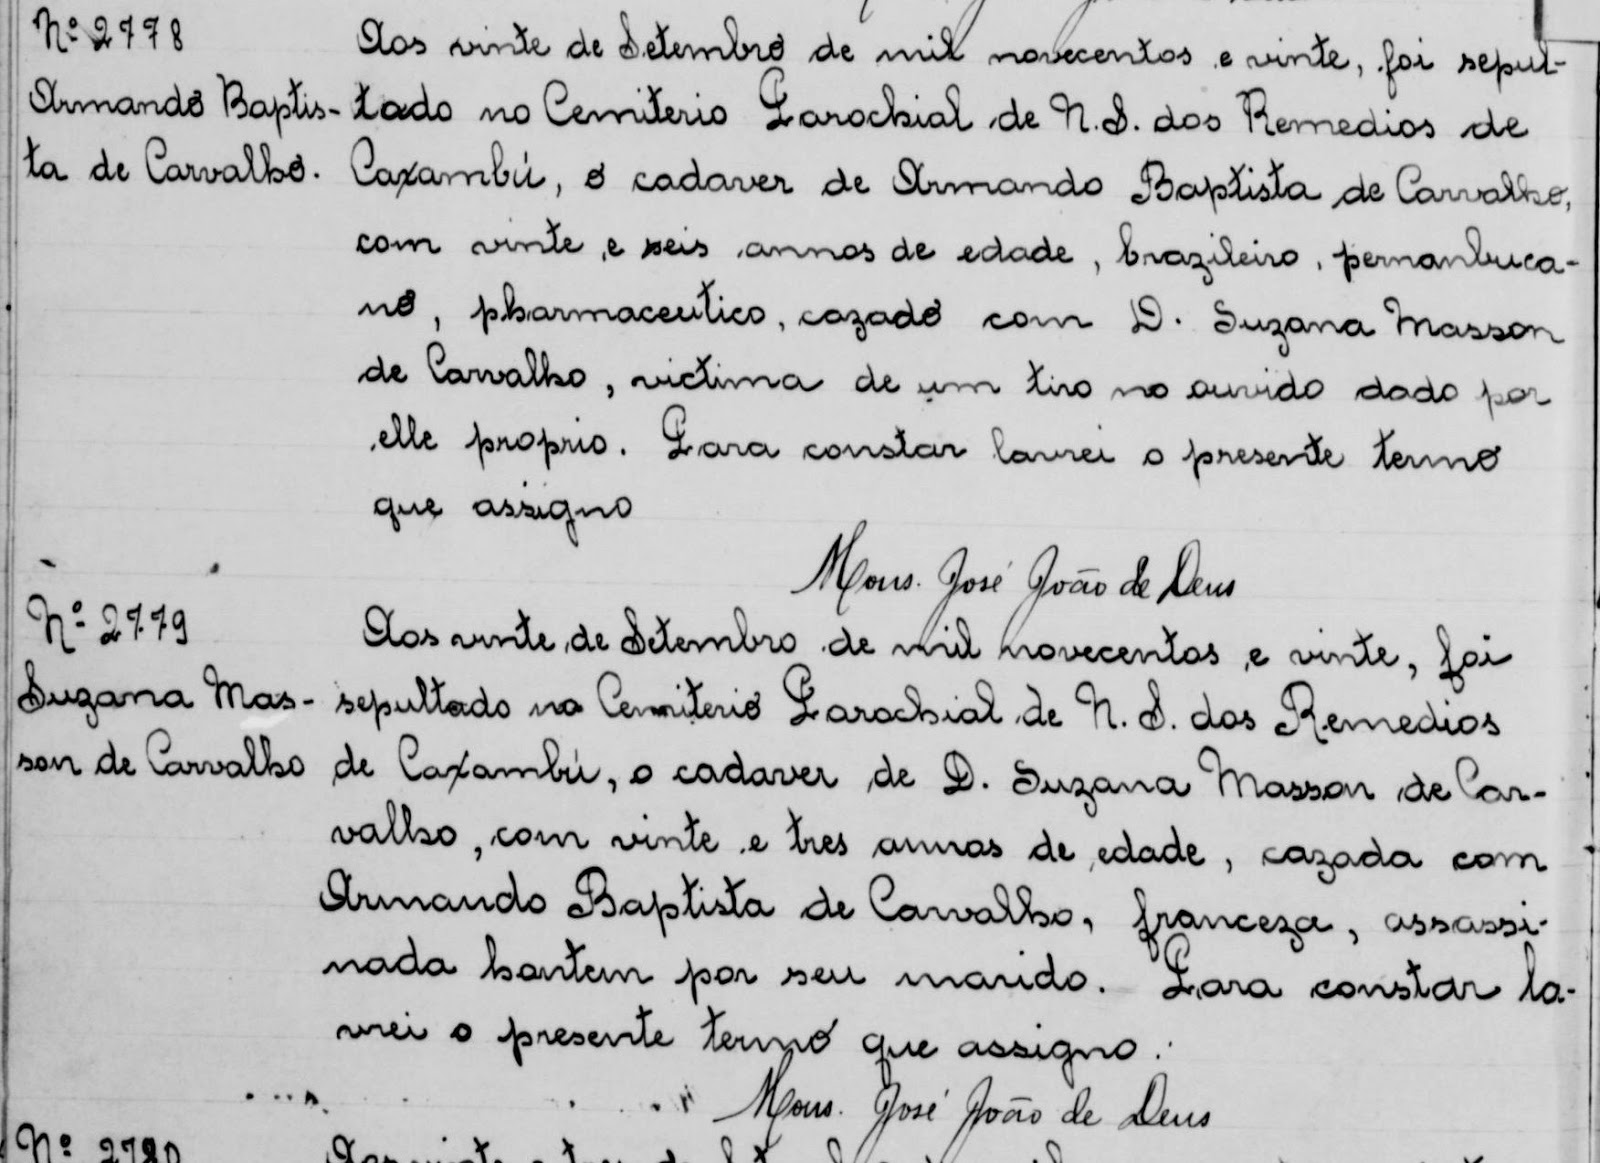 Nº 2778
Armando Baptis-
ta de Carvalho.
Aos vinte de Setembro de mil novecentos e vinte, foi sepul-
tado no Cemiterio Parochial de N. S. dos Remedios de
Caxambú, o cadaver de Armando Baptista de Carvalho,
com vinte e seis annos de edade, brazileiro, pernanbuca-
no, pharmaceutico, cazado com D. Suzana Masson
de Carvalho, victima de um tiro no ouvido dado por
elle proprio. Para constar lavrei o presente termo
que assigno
Mons. José João de Deus
Nº 2779
Suzana Mas-
son de Carvalho
Aos vinte de Setembro de mil novecentos e vinte, foi
sepultado no Cemiterio Parochial de N. S. dos Remedios
de Caxambú, o cadaver de D. Suzana Masson de Car-
valho, com vinte e tres annos de edade, cazada com
Armando Baptista de Carvalho, franceza, assassi-
nada hontem por seu marido. Para constar la-
vrei o presente termo que assigno.
Mons. José João de Deus
Nº 2780